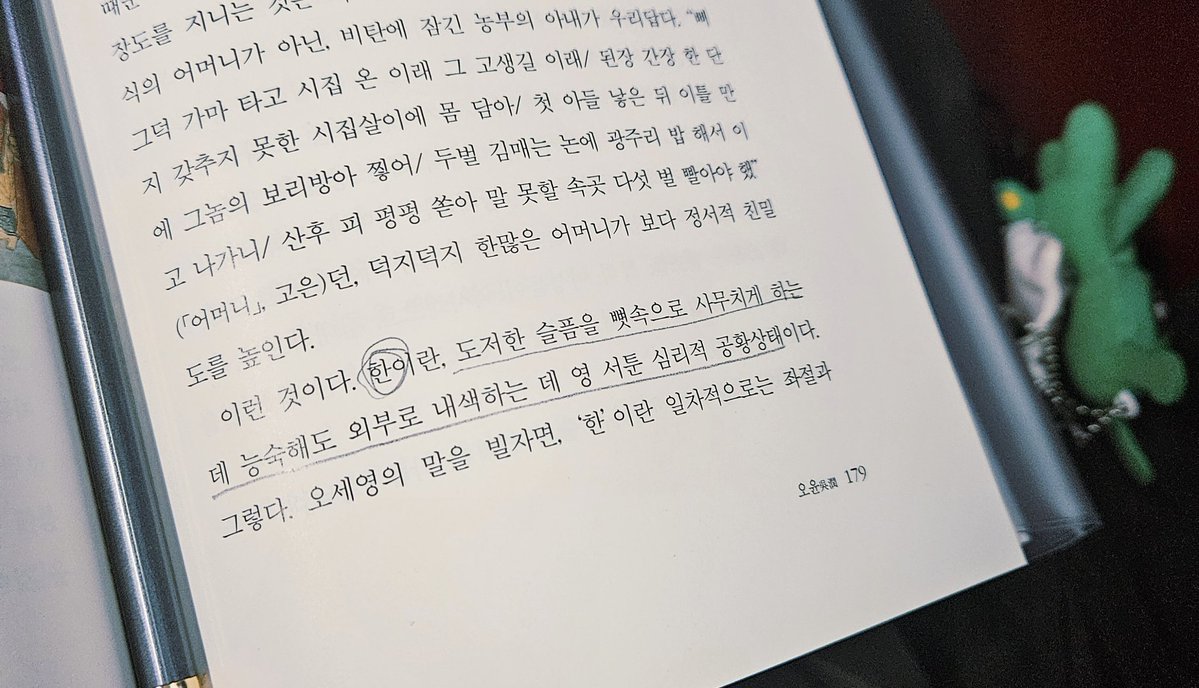 때문
장도를 지니는 것은
식의 어머니가 아닌, 비탄에 잠긴 농부의 아내가 우리답다. “삐
그덕 가마 타고 시집 온 이래 그 고생길 이래/ 된장 간장 한 단
지 갖추지 못한 시집살이에 몸 담아/ 첫 아들 낳은 뒤 이틀 만
에 그놈의 보리방아 찧어/ 두벌 김매는 논에 광주리 밥 해서 이
고 나가니/ 산후 피 펑펑 쏟아 말 못할 속곳 다섯 벌 빨아야 했”
(「어머니」, 고은)던, 덕지덕지 한많은 어머니가 보다 정서적 친밀
도를 높인다.
이런 것이다. 한이란, 도저한 슬픔을 뼛속으로 사무치게 하는
데 능숙해도 외부로 내색하는 데 영 서툰 심리적 공황상태이다.
그렇다. 오세영의 말을 빌자면, ‘한’이란 일차적으로는 좌절과
오윤吳潤 179